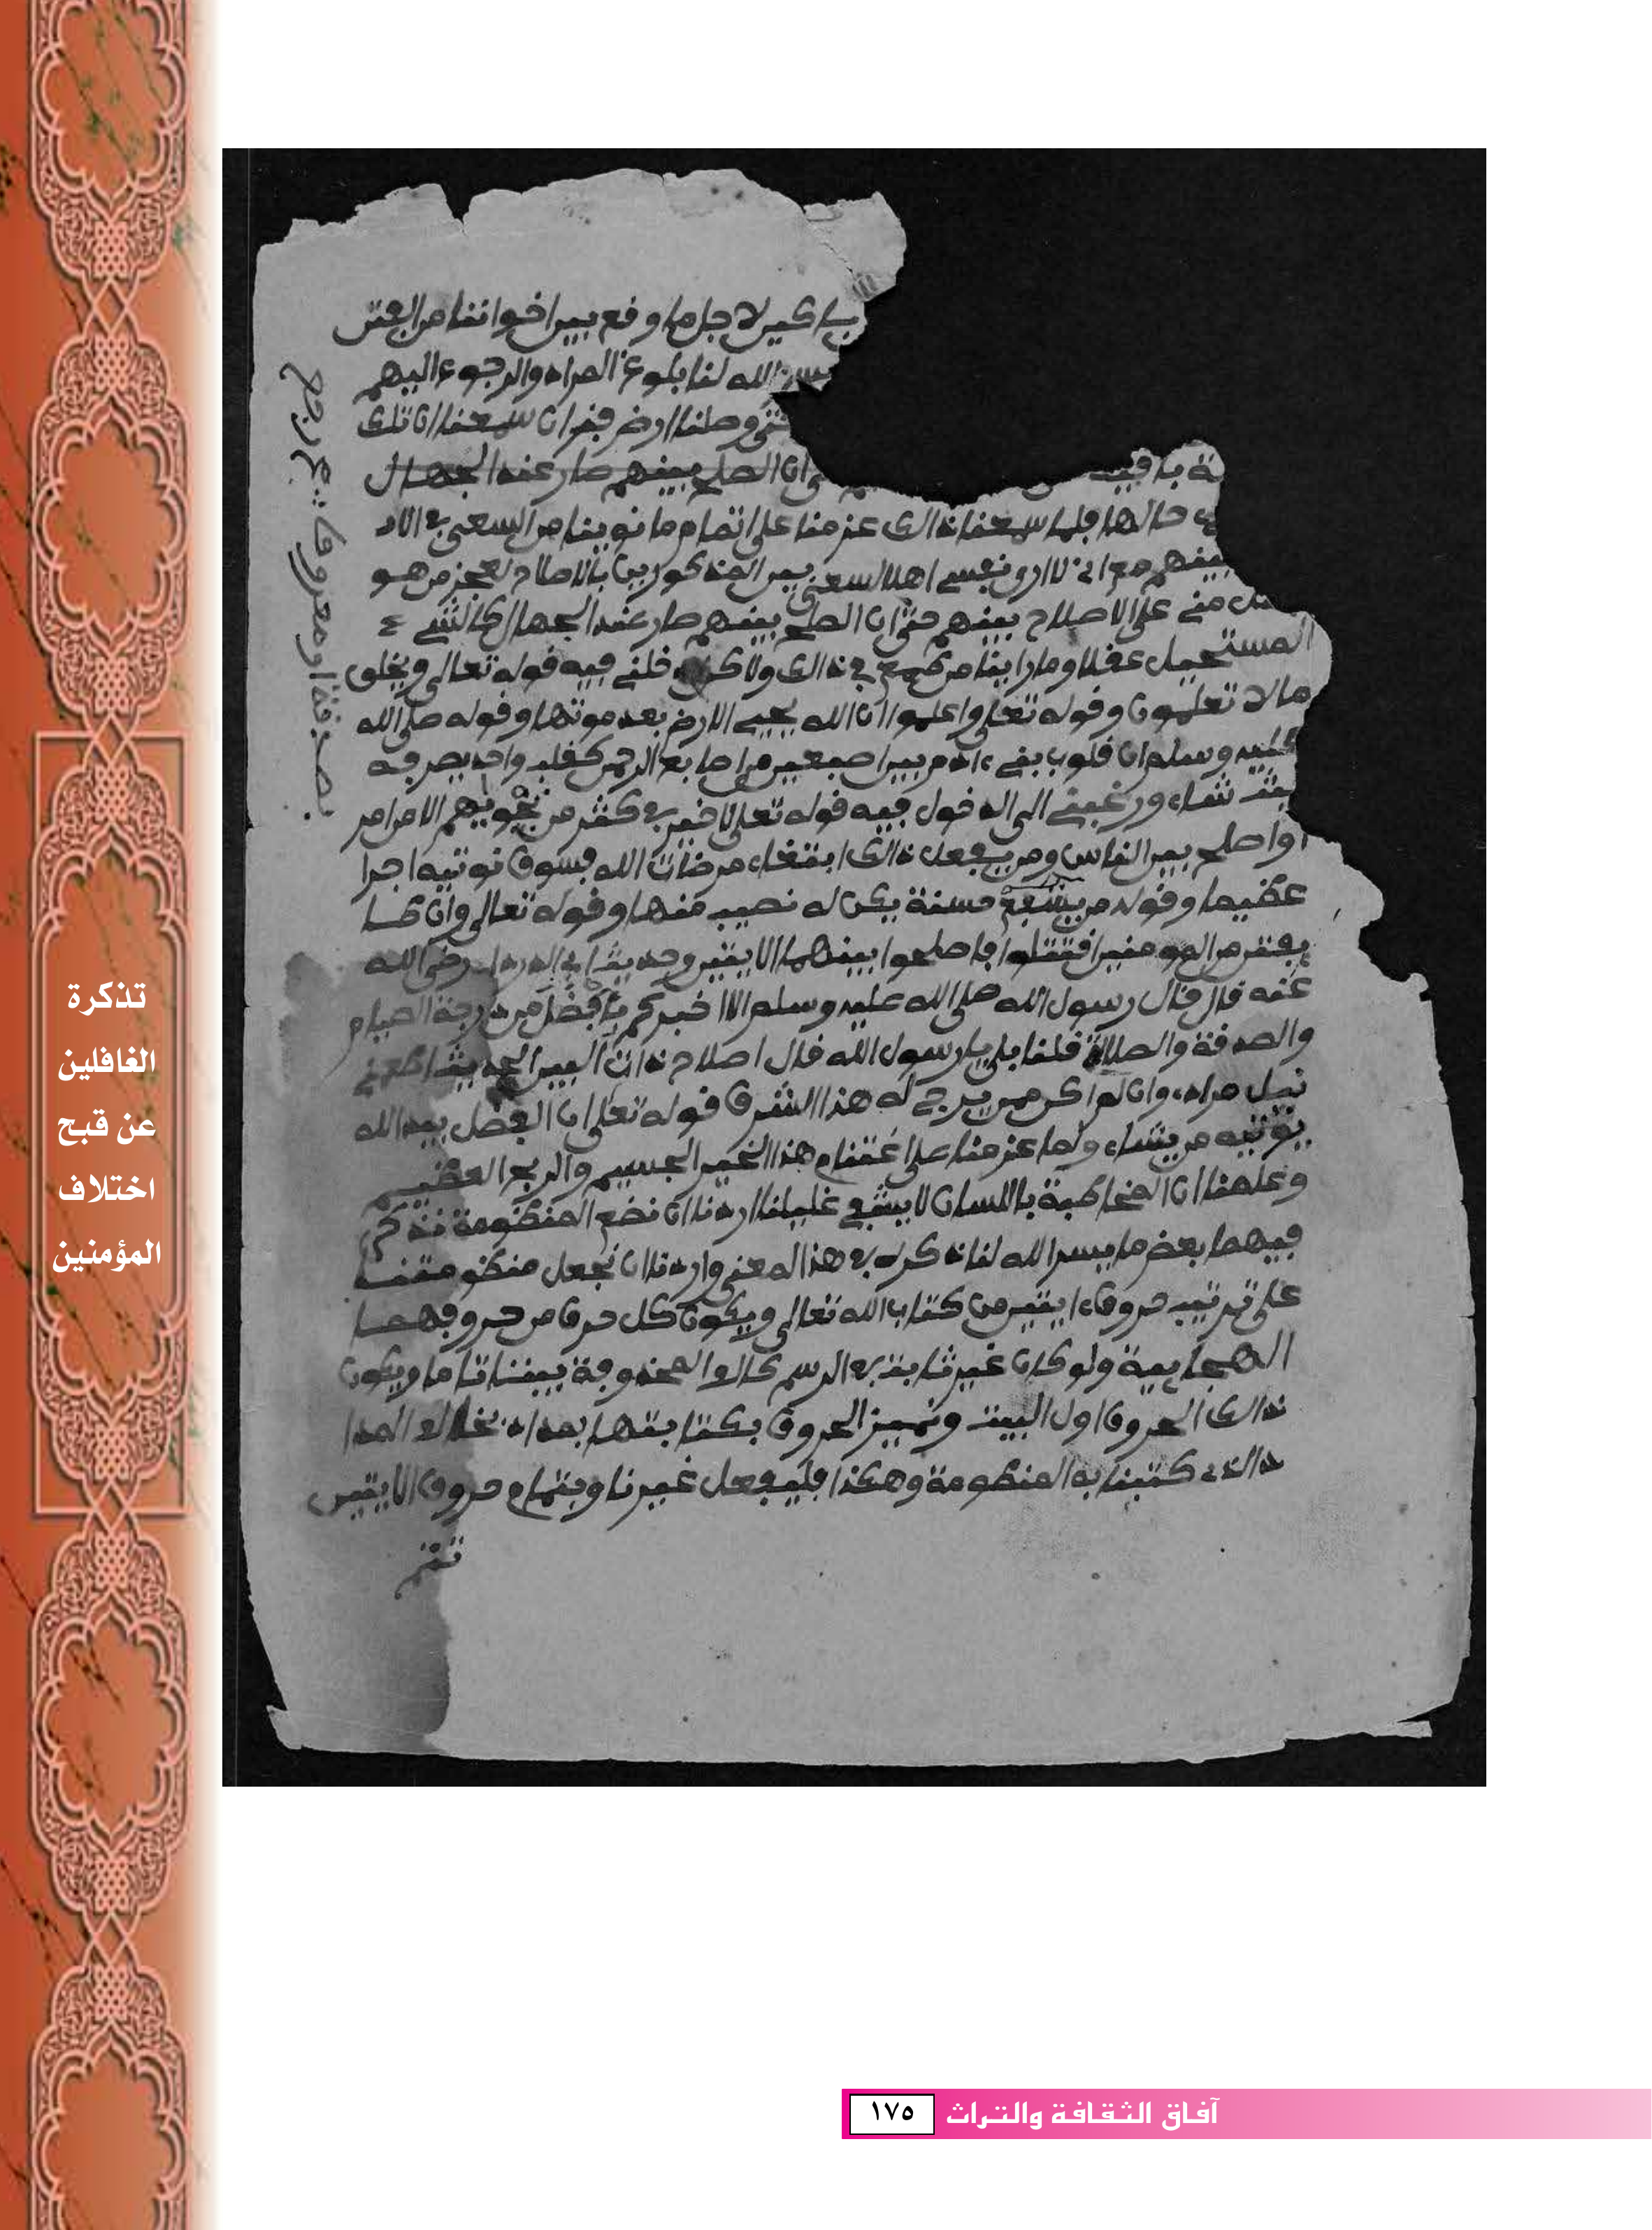 يا كبير لاجل ما وقع بين اخواننا من الفتن
الله لنا بلوغ المراد والرجوع اليهم
وصلنا ارض فزان سمعنا ان تلك
ة باقية ان الصلح بينهم صار عند الجهال
حالها فلما سمعنا ذالك عزمنا على اتمام ما نوينا من السعي في الا
بينهم مع اني لا ارى نفسي اهلا للسعي بين المذكورين بالاصلاح لعجز من هو
مني على الاصلاح بينهم حتى ان الصلح بينهم صار عند الجهال كالشيء
المستحيل عقلا وما راينا من طمع في ذالك ولاكن قلني فيه قوله تعالى ويخلق
ما لا تعلمون وقوله تعلى واعلموا ان الله يحيي الارض بعد موتها وقوله صلى الله
عليه وسلم ان قلوب بني ءادم بين اصبعين من اصابع الرحمن كقلب واحد يصرفه
شاء ورغبني الى الدخول فيه قوله تعلى لا خير في كثير من نجويهم الا من امر
بصدقة او معروف او اصلح بين الناس ومن يفعل ذالك ابتغاء مرضات الله فسوف نوتيه اجرا
عظيما وقوله من يشفع شفعة حسنة يكن له نصيب منها وقوله تعالى وان طا
يفتن من المومنين اقتتلوا فاصلحوا بينهما الايتين وحديث ابي الدرداء رضى الله
عنه قال قال رسول الله صلى الله عليه وسلم الا اخبركم بافضل من درجة الصيام
والصدقة والصلاة قلنا بلى يا رسول الله قال اصلاح ذات البين الحديث اطمعني
نيل مراد، وان لم اكن ممن يرجى له هذا الشرف قوله تعلى ان الفضل بيد الله
يوتيه من يشاء ولما عزمنا على اغتنام هذا الخير الجسيم والربح العظيم
وعلمنا ان المخاطبة باللسان لا يشفي غليلنا اردنا ان نضع المنظومة نذكر
فيهما بعض ما يسر الله لنا ذكره في هذا المعنى واردنا ان نجعل منظومتنا
على ترتيب حروف ءايتين من كتاب الله تعالى ويكون كل حرف من حروفهما
الهجايية ولو كان غير ثابت في الرسم كالالف المحذوفة بيننا تاما ويكون
ذالك الحروف اول البيت وتمييز الحروف بكتابتها بمداد يخالف المدا
د الذي كتبنا به المنظومة وهكذا فليفعل غيرنا وبتمام حروف الايتين
تتم
تذكرة
الغافلين
عن قبح
اختلاف
المؤمنين
آفاق الثقافة والتراث ١٧٥